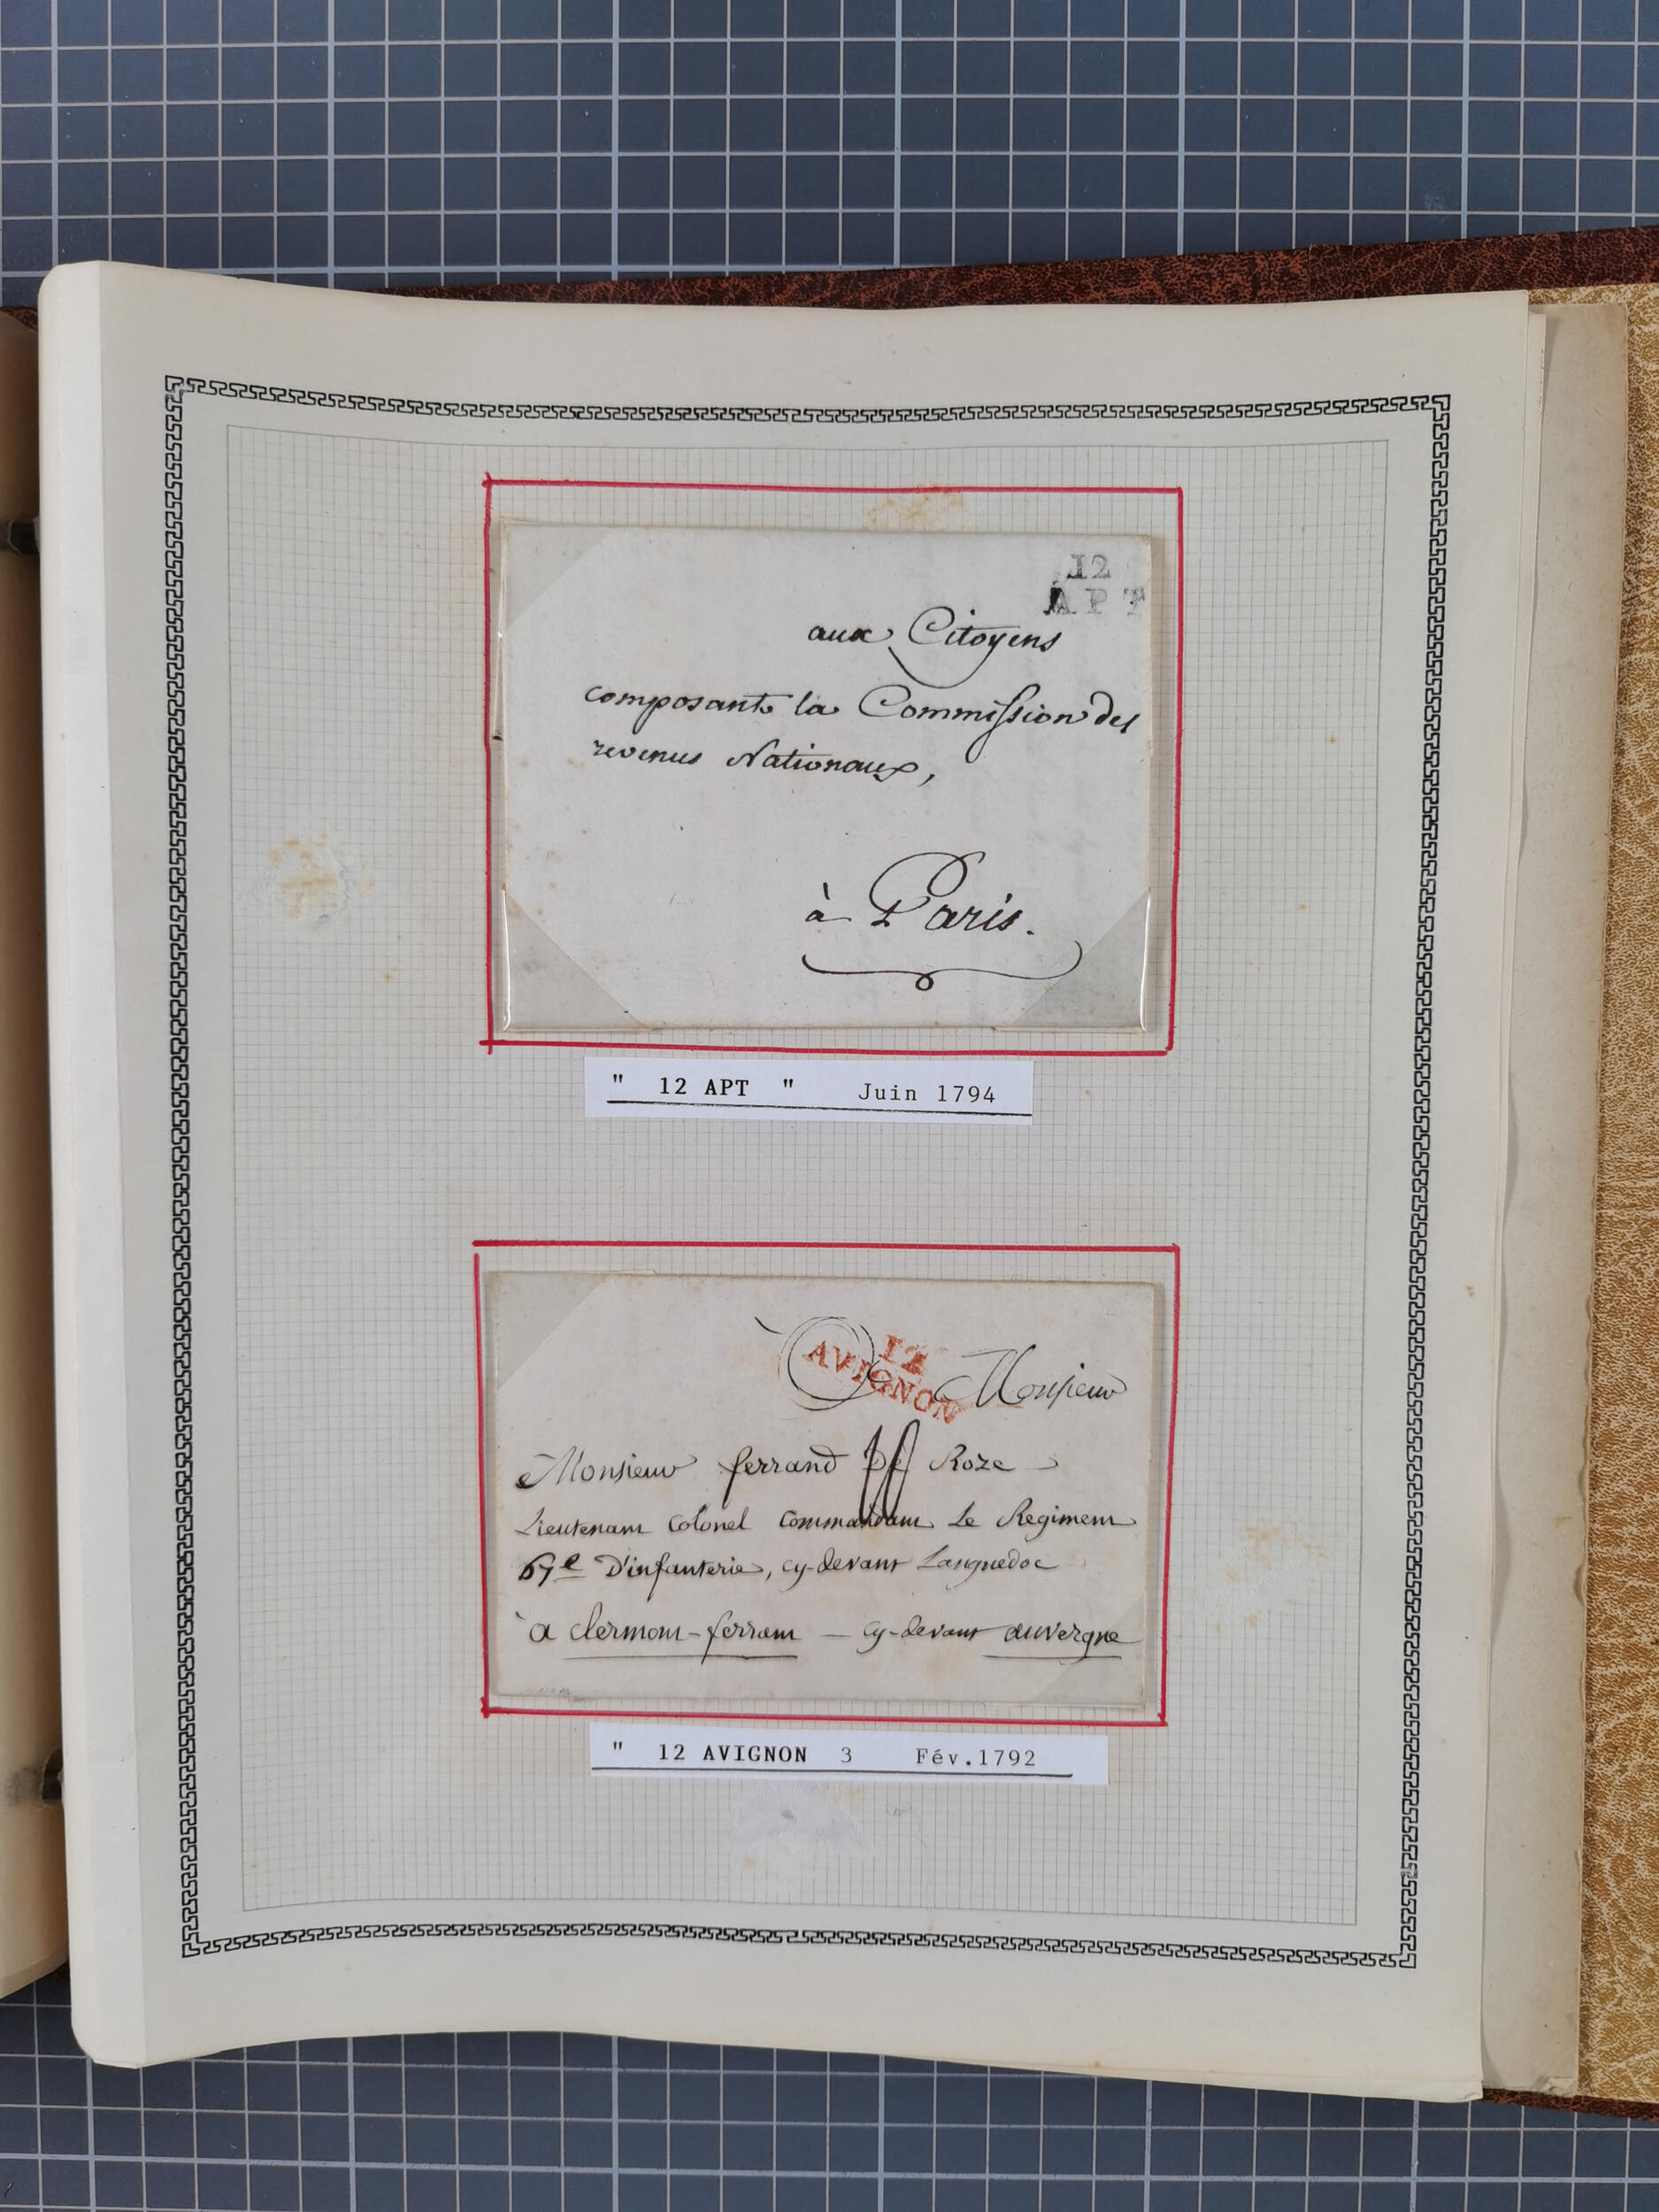 12
APT
aux Citoyens
composants la Commission des
revenus Nationaux,
à Paris.
" 12 APT " Juin 1794
12
AVIGNON
A Monsieur
Monsieur ferrand Roze
Lieutenant Colonel Commandant Le Regiment
67e D'infanterie, cy-devant Languedoc
à clermont-ferrant — cy-devant auvergne
" 12 AVIGNON 3 Fév.1792